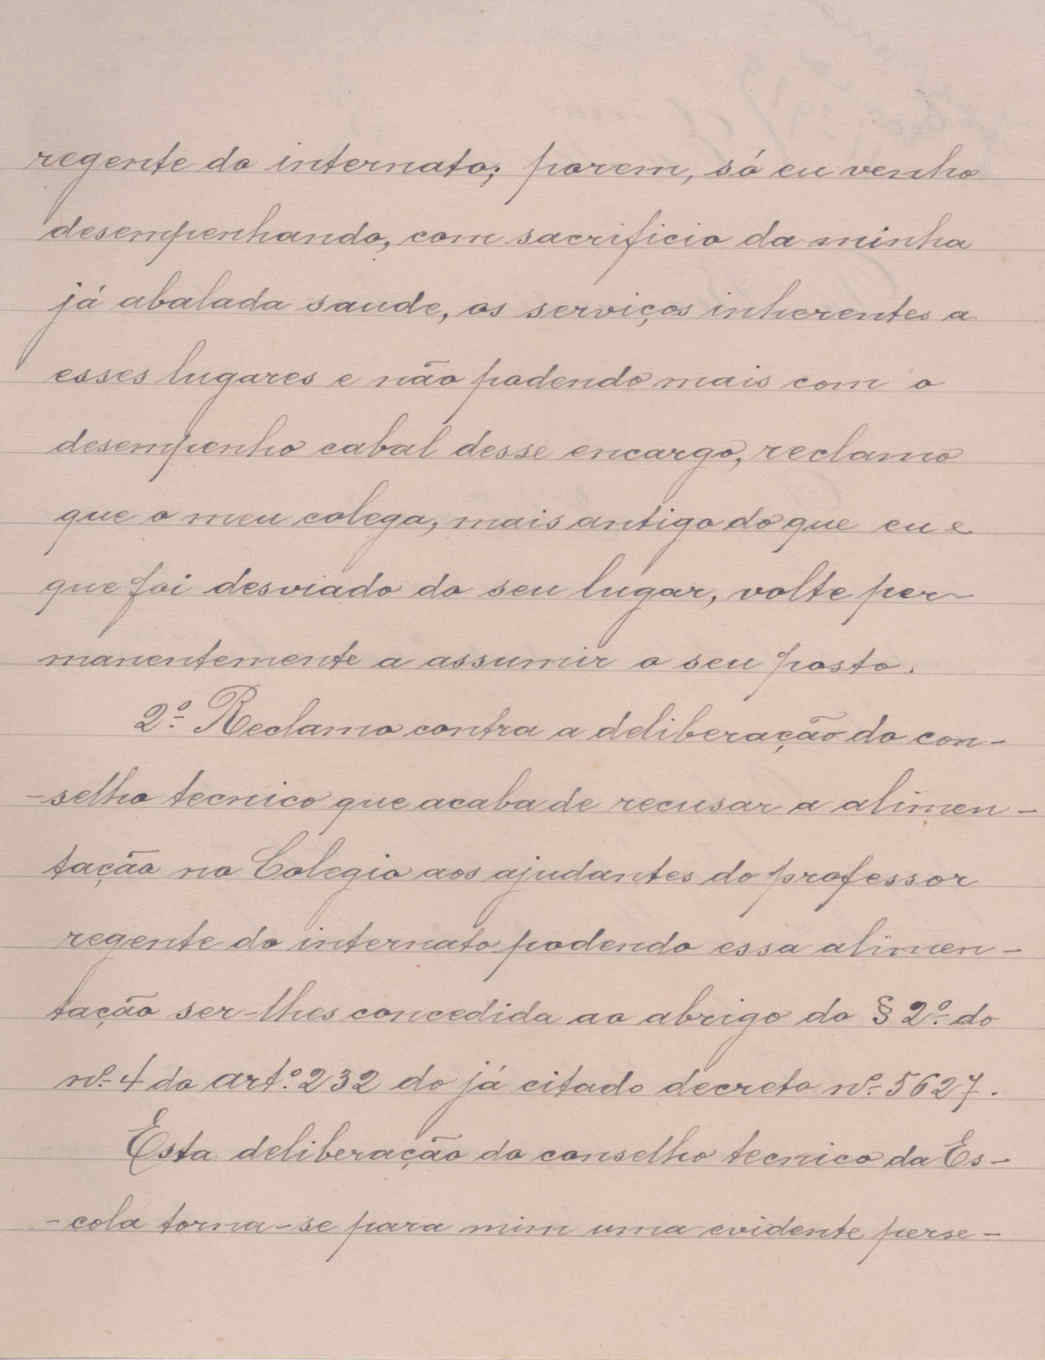 regente do internato; porem, só eu venho
desempenhando, com sacrificio da minha
já abalada saude, os serviços inherentes a
esses lugares e não podendo mais com o
desempenho cabal desse encargo, reclamo
que o meu colega, mais antigo do que eu e
que foi desviado do seu lugar, volte per-
manentemente a assumir o seu posto.
2º Reclamo contra a deliberação do con-
-selho tecnico que acaba de recusar a alimen-
tação no Colegio aos ajudantes do professor
regente do internato podendo essa alimen-
tação ser-lhes concedida ao abrigo do § 2º do
nº 4 do artº 232 do já citado decreto nº 5627.
Esta deliberação do conselho tecnico da Es-
-cola torna-se para mim uma evidente perse-